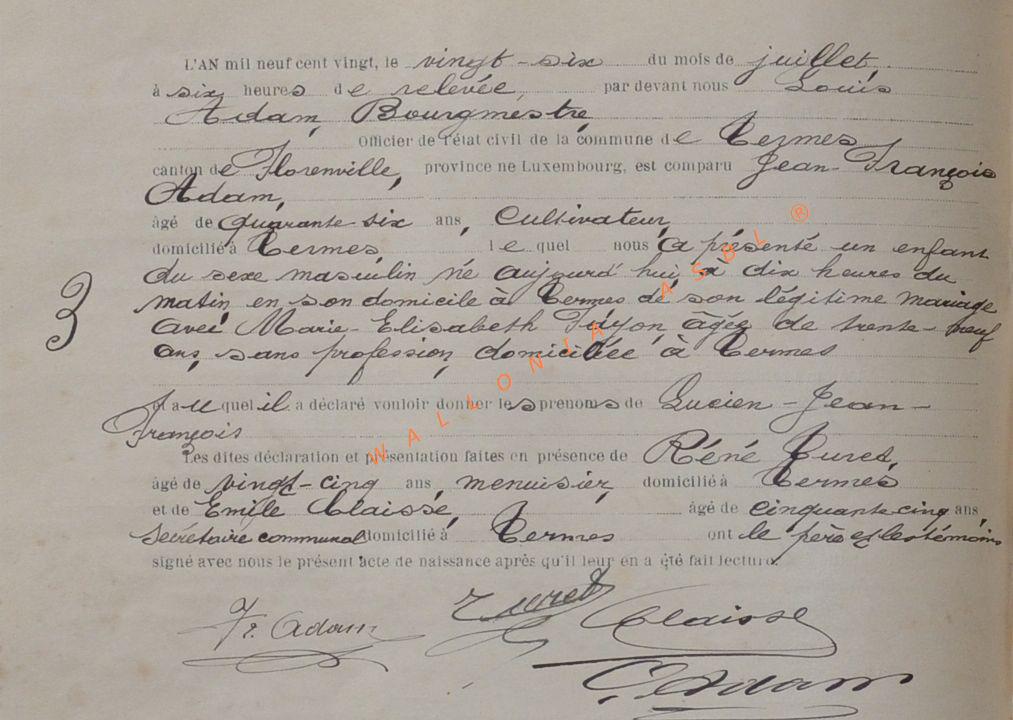 L'AN mil neuf cent vingt, le vingt-six du mois de juillet,
à six heures de relevée, par devant nous Louis
Adam, Bourgmestre
Officier de l'état civil de la commune de Termes
canton de Florenville, province ne Luxembourg, est comparu Jean-François
Adam,
âgé de quarante-six ans, Cultivateur,
domicilié à Termes, lequel nous a présenté un enfant
du sexe masculin né aujourd'hui, à dix heures du
matin, en son domicile à Termes de son légitime mariage
avec Marie-Elisabeth, âgée de trente-neuf
ans, sans profession, domiciliée à Termes
3
et auquel il a déclaré vouloir donner les prénoms de Lucien-Jean-
François
Les dites déclaration et présentation faites en présence de Réné Turet,
âgé de vingt-cinq ans, menuisier, domicilié à Termes
et de Emile Claisse, âgé de cinquante-cinq ans,
Secrétaire communal domicilié à Termes ont le père et les témoins
signé avec nous le présent acte de naissance après qu'il leur en a été fait lecture.
Adam Turet Claisse
Adam
WALLONIA ASBL ®